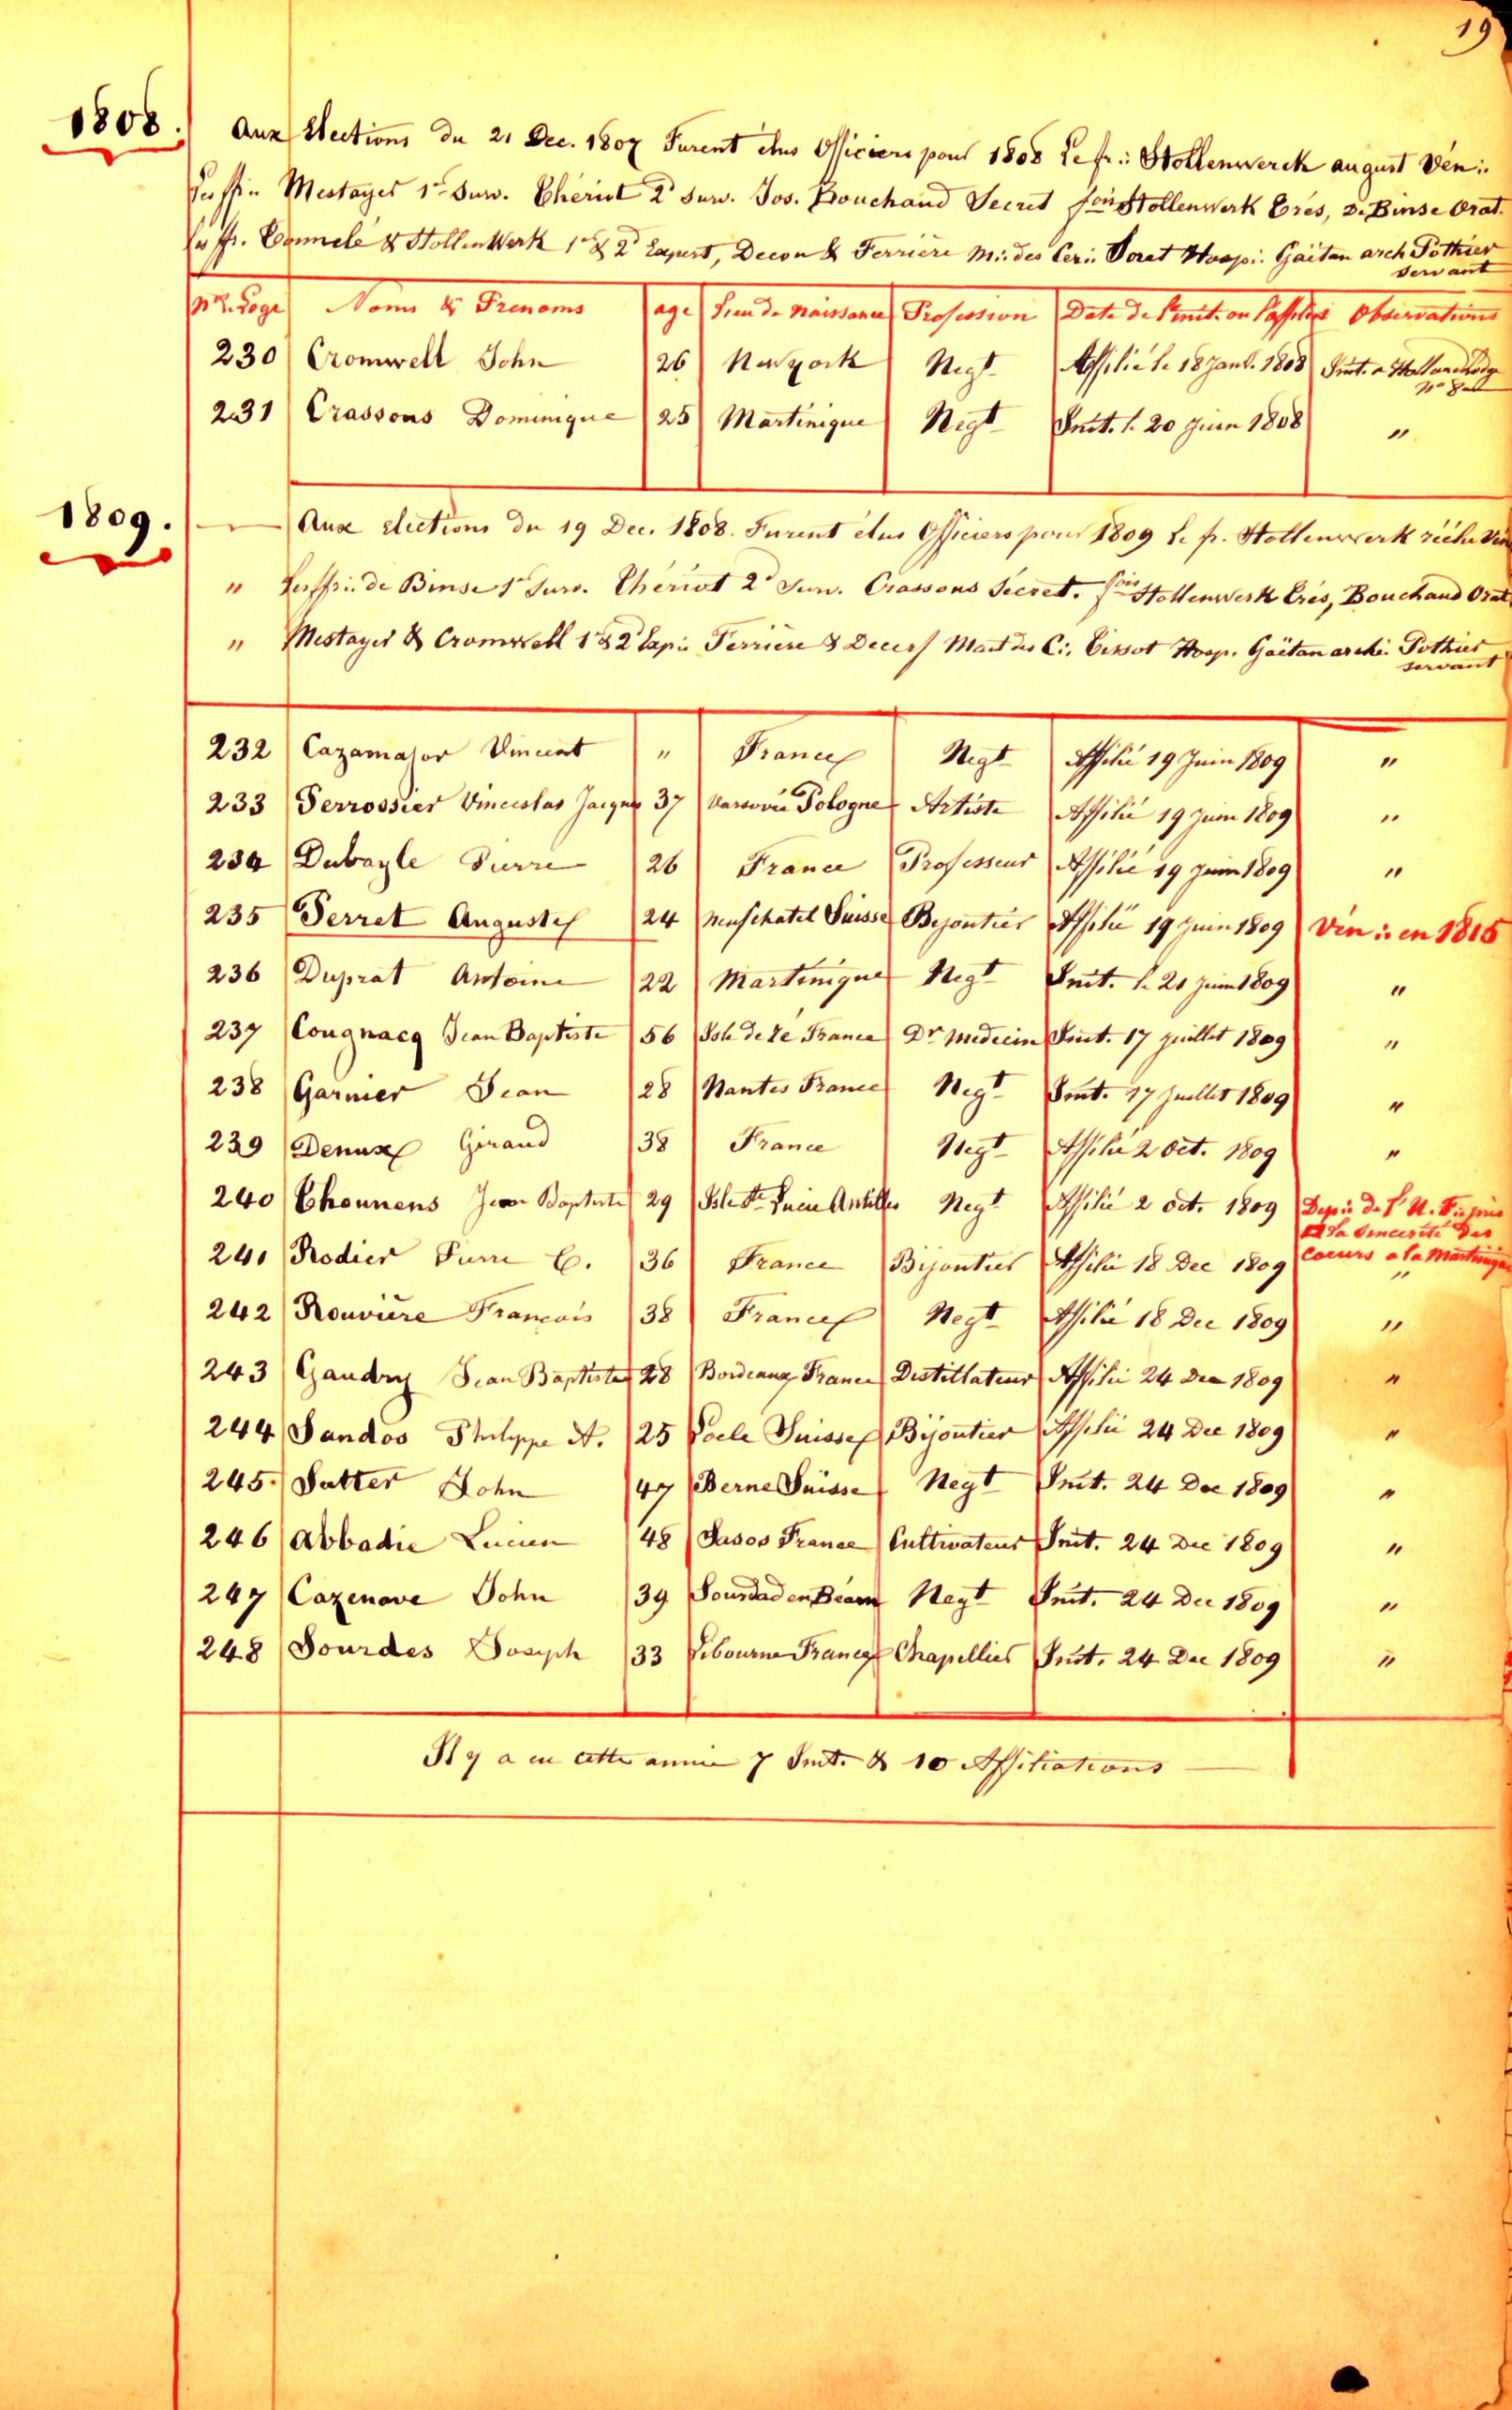 19
1808.
Aux Elections du 21 Dec. 1807 Furent élus Officiers pour 1808 Le fr∴ Stollenwerck august Vén∴
Les ff∴ Mestayer 1r Surv. Thériot 2d Surv. Jos. Bouchaud Secret fois Stollenwerk Trés, D. Binse Orat.
Les ff. & Stollenwerk 1r & 2d Expert, Decou & Ferrière M∴ des Cer∴ Hospi∴ Gaëtan arch Pothier
servant
No d. Loge Noms & Prenoms age Lieu de Naissance Profession Date de l'Init. ou l'affilié Observations
230 Cromwell John 26 Newyork Negt Affilié le 18 Janv. 1808 Init. a Holland Lodge
No 8
231 Crassons Dominique 25 Martinique Negt Init. l. 20 Juin 1808 "
1809.
Aux elections du 19 Dec. 1808. Furent élus Officiers pour 1809 Le fr. Stollenwerk Vén
" Les ff∴ de Binse 1r Surv. Thériot 2d Surv. Crassons Secret. fois Stollenwerk Trés, Bouchaud Orat
" Mestayer & Cromwell 1 & 2d Exp∴ Ferrière & Mait des C∴ Hosp. Gaëtan archi. Pothier
servant
232 Cazamajor Vincent " France Negt Affilié 19 Juin 1809 "
233 Perrossier Vinceslas Jacques 37 Varsovie Pologne Artiste Affilié 19 Juin 1809 "
234 Dubayle Pierre 26 France Professeur Affilié 19 Juin 1809 "
235 Perret Auguste 24 Neufchatel Suisse Bijoutier Affilié 19 Juin 1809 Vén∴ en 1815
236 Duprat Antoine 22 Martinique Negt Init. l. 21 Juin 1809 "
237 Cougnacq Jean Baptiste 56 Isle de Ré France Dr Medecin Init. 17 Juillet 1809 "
238 Garnier Jean 28 Nantes France Negt Init. 17 Juillet 1809 "
239 Denux Giraud 38 France Negt Affilié 2 Oct. 1809 "
240 Chounens Jean Baptiste 29 Isle Ste Lucie Antilles Negt Affilié 2 Oct. 1809 Dep∴ de l'U. F∴ près
la Sincerité des
241 Rodier Pierre C. 36 France Bijoutier Affilié 18 Dec 1809 Coeurs a la Martinique
"
242 Rouvière Francois 38 France Negt Affilié 18 Dec 1809 "
243 Gaudry Jean Baptiste 28 Bordeaux France Distillateur Affilié 24 Dec 1809 "
244 Sandos Philippe A. 25 Locle Suisse Bijoutier Affilié 24 Dec 1809 "
245. Sutter John 47 Berne Suisse Negt Init. 24 Dec 1809 "
246 Abbadie Lucien 48 France Cultivateur Init. 24 Dec 1809 "
247 Cazenove John 39 en Béarn Negt Init. 24 Dec 1809 "
248 Sourdes Joseph 33 Libourne France Chapellier Init. 24 Dec 1809 "
Il y a eu cette année 7 Init. & 10 Affiliations